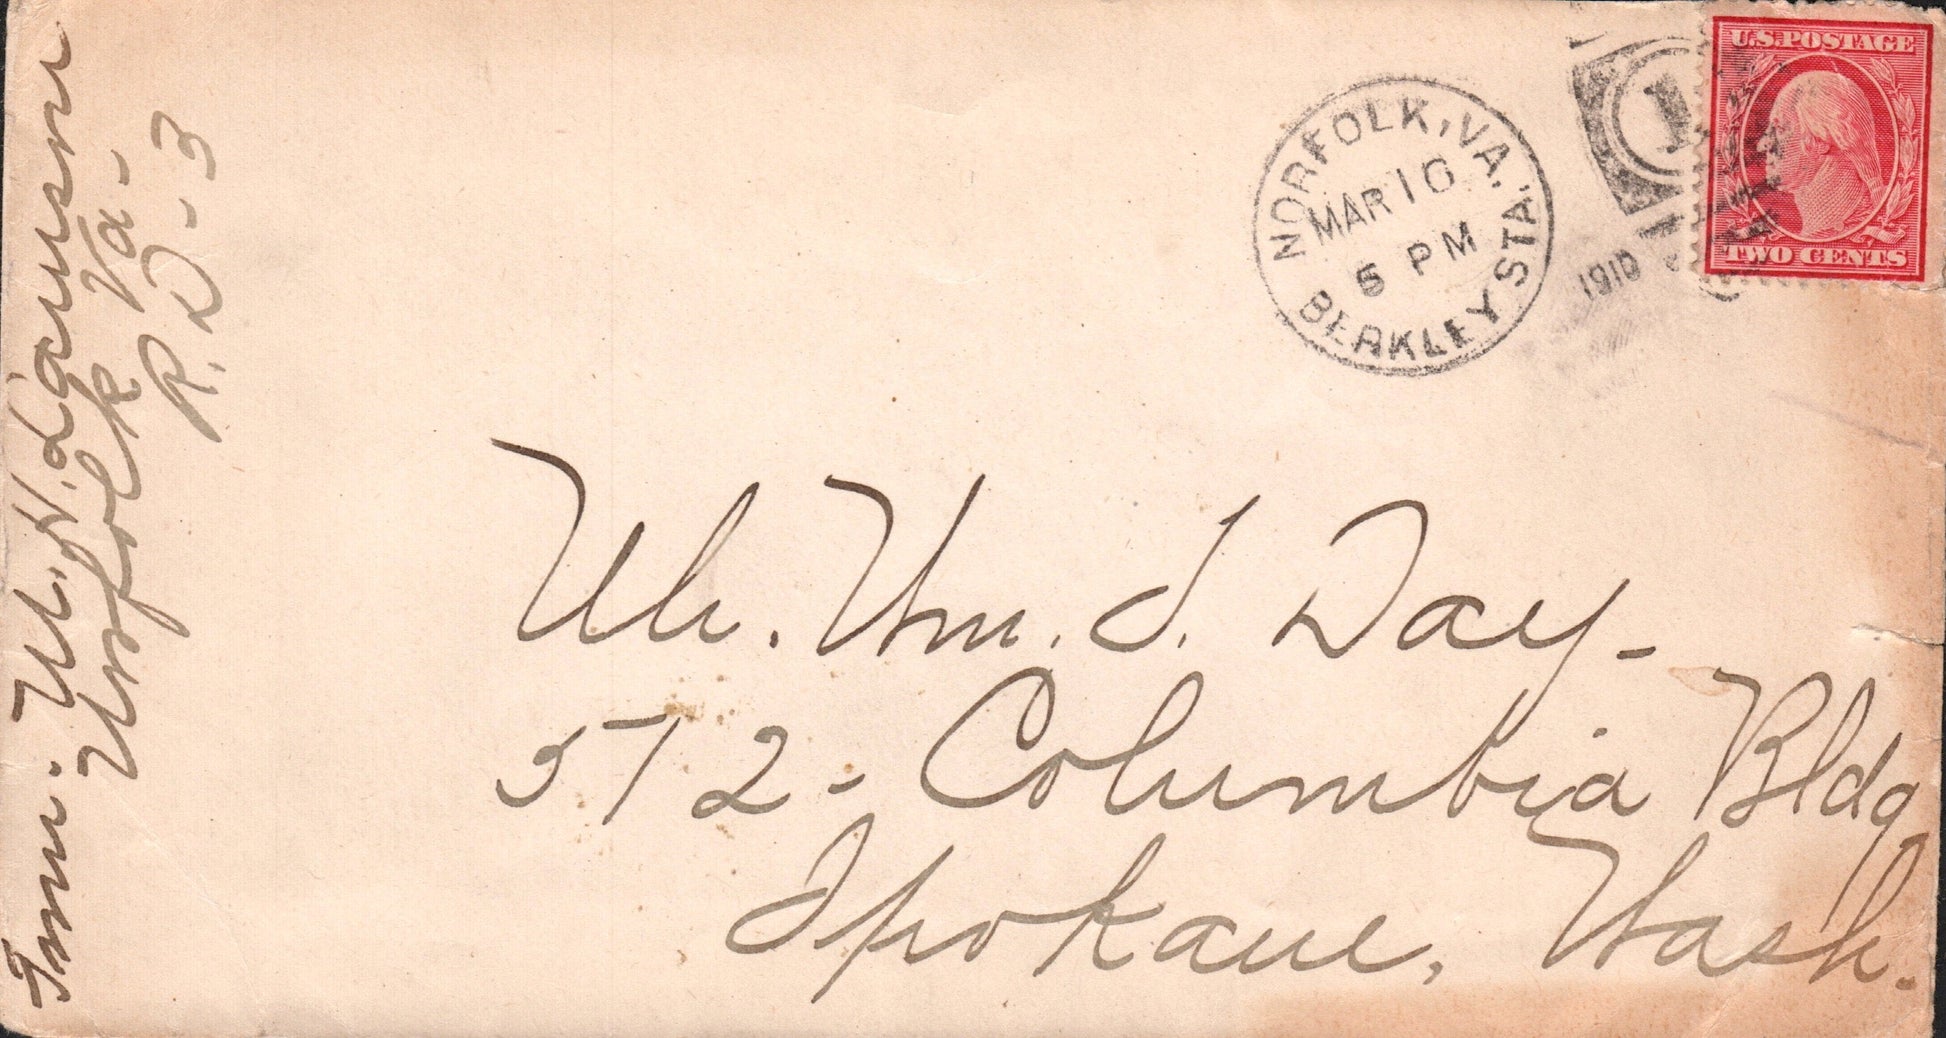 From. W. H. Lawson
Norfolk Va-
R. D - 3
NORFOLK, VA.
MAR 10
5 PM
BERKLEY STA.
1910
1
U.S. POSTAGE
TWO CENTS
Mr. Wm. I. Day-
572- Columbia Bldg
Spokane, Wash.